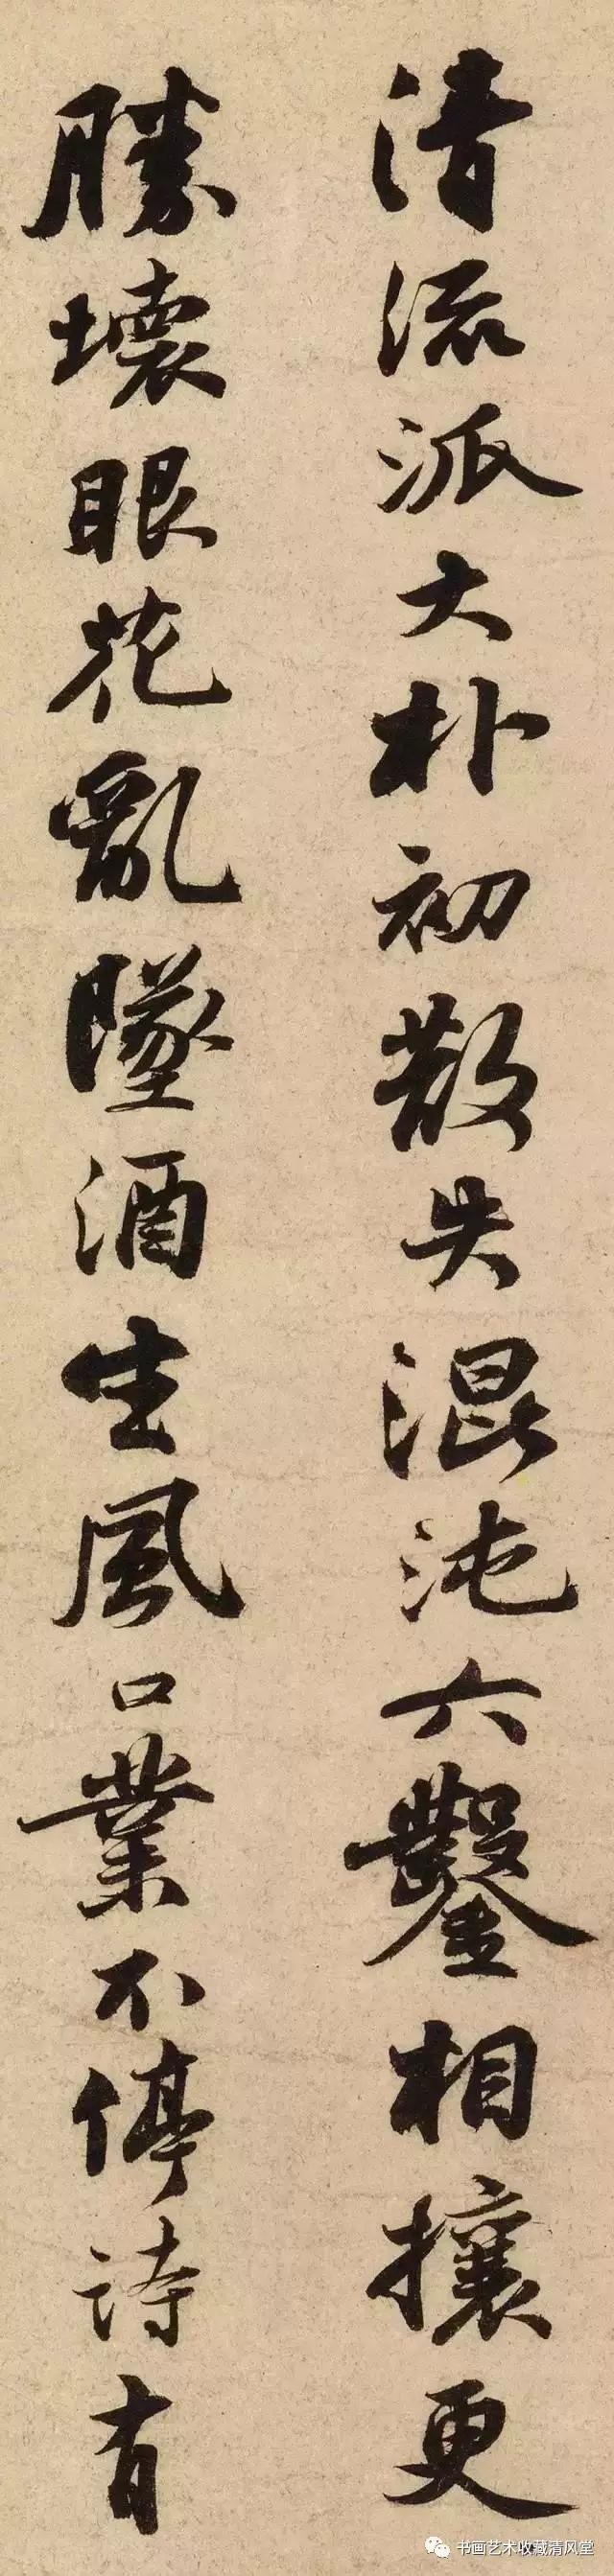 清流派大朴初散失混沌六鑿相攘更
勝壞眼花亂墜酒生風口業不停詩有
书画艺术收藏清风堂